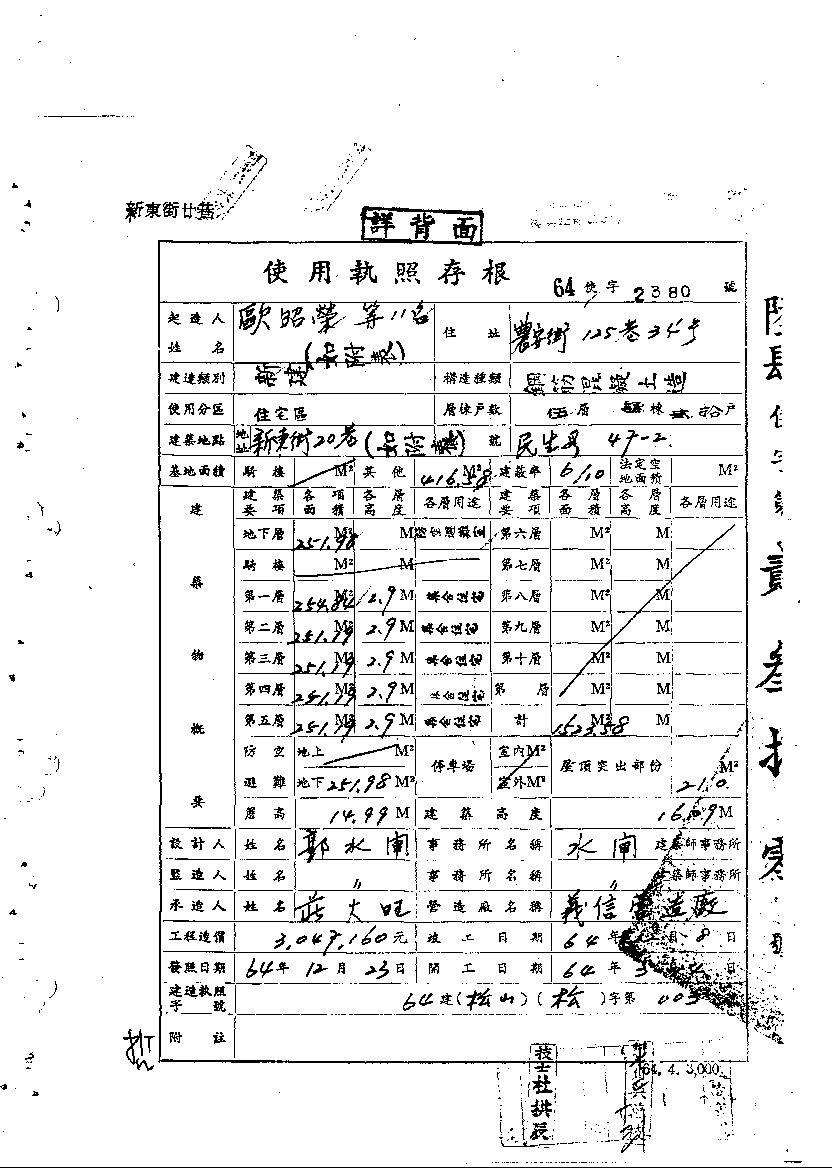 新東街廿巷
詳背面
使用執照存根
64 使字 2380 號
起造人姓名 歐昭榮 等11名 (如附表) 住址 農安街 125巷34号
建造類別 新建 構造種類 鋼筋混凝土造
使用分區 住宅區 層棟戶數 伍層 棟 拾戶
建築地點 地址 新東街20巷 (如附表) 號 民生号 47-2
基地面積 騎樓 M² 其他 416.58 M² 建蔽率 6/10 法定空地面積 M²
建築物概要 建築要項 各項面積 各層高度 各層用途 建築要項 各層面積 各層高度 各層用途
地下層 251.98 M² M 第六層 M² M
騎樓 M² M 第七層 M² M
第一層 254.84 M² 2.9 M 集合住宅 第八層 M² M
第二層 251.79 M² 2.9 M 集合住宅 第九層 M² M
第三層 251.79 M² 2.9 M 集合住宅 第十層 M² M
第四層 251.79 M² 2.9 M 集合住宅 第 層 M² M
第五層 251.79 M² 2.9 M 集合住宅 計 1523.58 M² M
防空避難 地上 M² 停車場 室內M² 屋頂突出部份 21.0 M²
地下 251.98 M² 室外M²
層高 14.99 M 建築高度 16.09 M
設計人 姓名 郭水闸 事務所名稱 水闸 建築師事務所
監造人 姓名 〃 事務所名稱 〃 建築師事務所
承造人 姓名 莊火旺 營造廠名稱 義信營造廠
工程造價 3,047,160元 竣工日期 64年 月8日
發照日期 64年12月23日 開工日期 64年3月4日
建造執照字號 64建(松山)(松)字第 003 號
附註
64. 4. 3,000.
技士杜拱辰